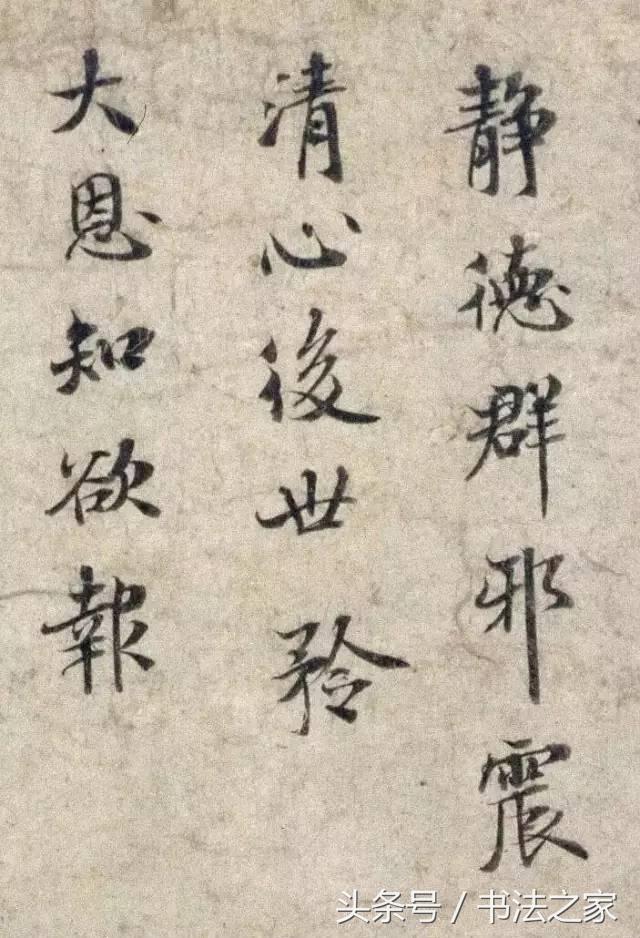 静德群邪震
清心後世矜
大恩知欲報
头条号 / 书法之家